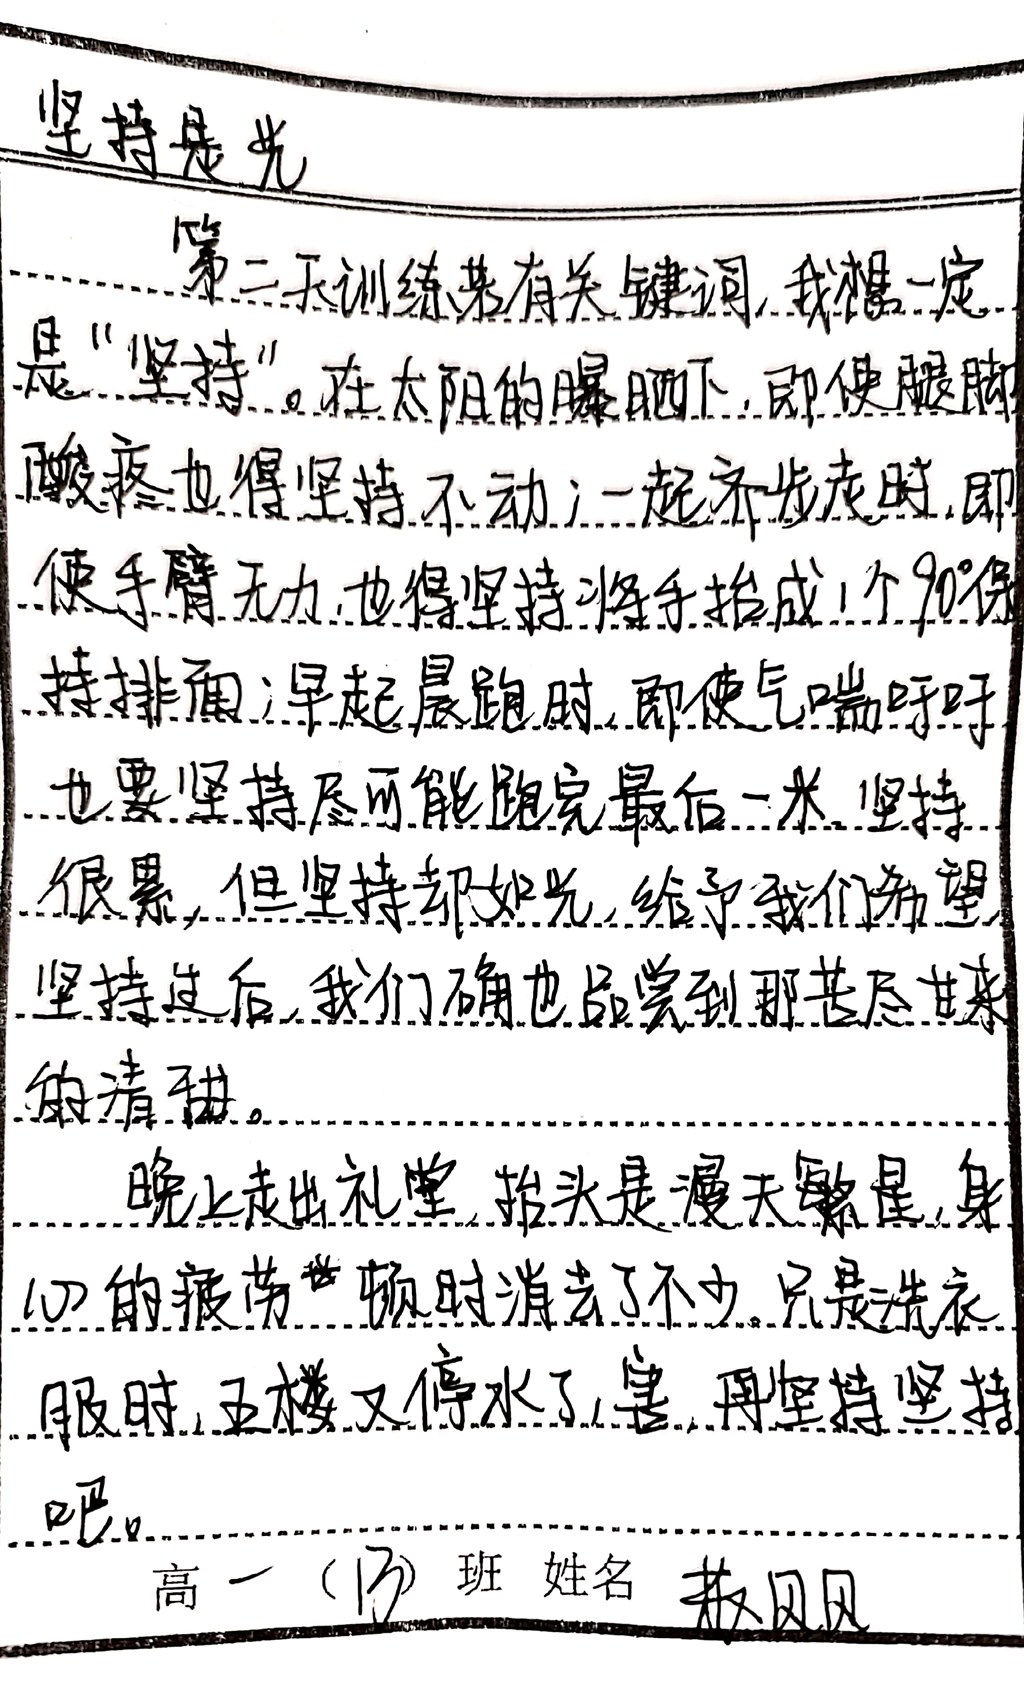 坚持是光
第二天训练若有关键词，我想一定
是“坚持”。在太阳的曝晒下，即使腿脚
酸疼也得坚持不动；一起齐步走时，即
使手臂无力，也得坚持将手抬成1个90°保
持排面；早起晨跑时，即使气喘吁吁
也要坚持尽可能跑完最后一米。坚持
很累，但坚持却如光，给予我们希望，
坚持过后，我们确也品尝到那苦尽甘来
的清甜。
晚上走出礼堂，抬头是漫天繁星，身
心的疲劳顿时消去了不少。只是洗衣
服时，五楼又停水了，害，再坚持坚持
吧。
高一（13）班 姓名 贝贝